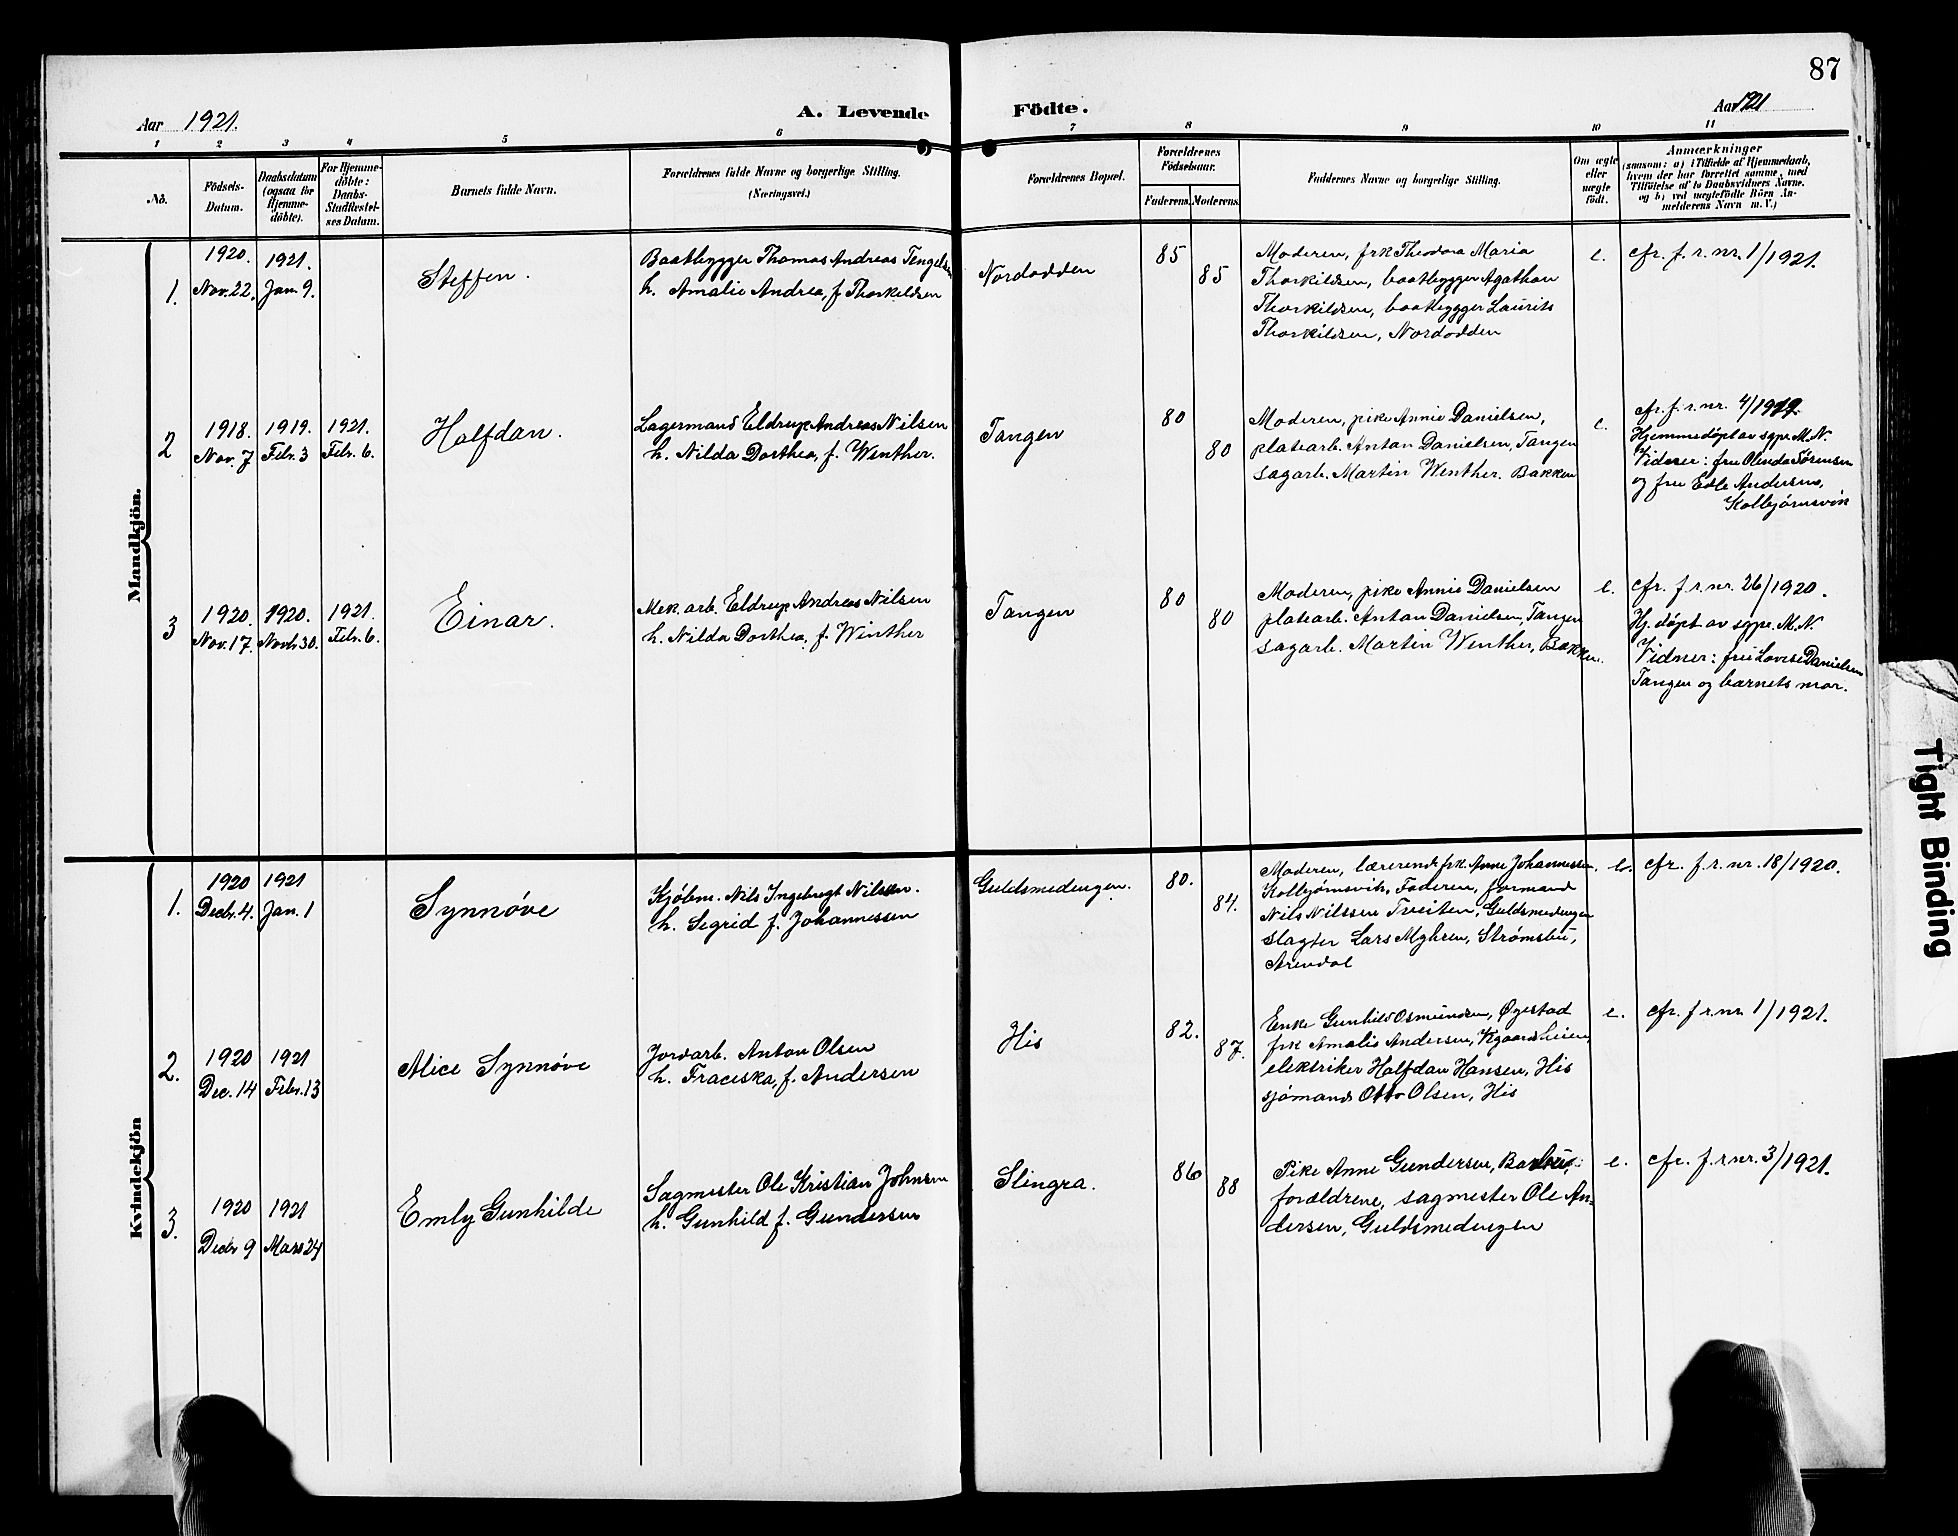 87
Aar 1921.
A. Levende
Födte.
Aar 1921
1 2 3 4 5 6 7 8 9 10 11
No.
Födsels-
Datum.
Daabsdatum
(ogsaa for
Hjemme-
döbte).
For Hjemme-
döbte:
Daabs-
Stadfæstel-
ses Datum.
Barnets fulde Navn.
Forældrenes fulde Navne og borgerlige Stilling.
(Næringsvei.)
Forældrenes Bopæl.
Forældrenes
Födselsaar.
Faderens. Moderens.
Faddernes Navne og borgerlige Stilling.
Om ægte
eller
uægte
födt.
Anmærkninger
(saasom: a) i Tilfælde af Hjemmedaab,
hvem der har forrettet samme, med
Tilföielse af to Daabsvidners Navne.
og b) ved uægtefödte Börn An-
melderens Navn m. V.)
Mandkjön.
1.
1920.
Nov. 22.
1921.
Jan. 9.
Steffen.
Baatbygger Thomas Andreas Tengelsen
h. Amalie Andrea, f. Thorkildsen
Nordodden
85
85
Moderen, frk Theodora Maria
Thorkildsen, baatbygger Agathon
Thorkildsen, baatbygger Laurits
Thorkildsen, Nordodden
e.
cfr. f. r. nr. 1/1921.
2
1918.
Nov. 7
1919.
Febr. 3
1921.
Febr. 6.
Halfdan.
Lagermand Eldrup Andreas Nilsen
h. Nilda Dorthea, f. Winther.
Tangen
80
80
Moderen, pike Annie Danielsen,
platearb. Anton Danielsen, Tangen
sagarb. Martin Winther. Bakken
e.
cfr. f. r. nr. 4/1919.
Hjemmedöpt av sgpr. M. N.
Vidner: fru Olinda Sørensen
og fru Edle Andersen,
Kolbjørnsvik
3
1920.
Nov. 17.
1920.
Novb. 30.
1921.
Febr. 6.
Einar.
Mek. arb. Eldrup Andreas Nilsen
h. Nilda Dorthea, f. Winther
Tangen
80
80
Moderen, pike Annie Danielsen
platearb. Anton Danielsen, Tangen
sagarb. Martin Winther, Bakken.
e.
cfr. f. r. nr. 26/1920.
Hj. døpt av sgpr. M. N.
Vidner: frue Lovise Danielsen
Tangen og barnets mor.
Kvindekjön
1.
1920
Decbr. 4.
1921
Jan. 1
Synnøve
Kjøbm. Nils Ingebregt Nilssen.
h. Sigrid f. Johannessen
Guldsmedengen.
80.
84.
Moderen, lærerinde frk. Anne Johannessen
Kolbjørnsvik, Faderen, formand
Nils Nilssen Tveiten, Guldsmedengen
slagter Lars Myhren, Strømsbu,
Arendal
e.
cfr. f. r. nr. 18/1920.
2.
1920
Dec. 14
1921
Febr. 13
Alice Synnøve
Jordarb. Anton Olsen
h. Fraciska, f. Andersen
His
82.
87.
Enke Gunhild Osmundsen, Øyestad
frk Amalie Andersen,
elektriker Halfdan Hansen, His
sjømand Otto Olsen, His
e.
cfr. f r. nr. 1/1921.
3.
1920
Decbr 9
1921
Mars 24
Emly Gunhilde
Sagmester Ole Kristian Johnsen
h. Gunhild f. Gundersen
Slingra.
86
88
Pike Anne Gundersen, Barbu,
forældrene, sagmester Ole An-
dersen, Guldsmedengen
e.
cfr. f. r. nr. 3/1921.
Tight Binding